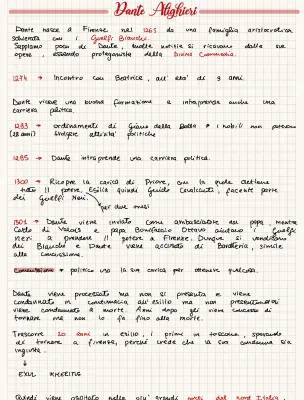 Dante Alighieri
Dante nasce a Firenze nel 1265 da una famiglia aristocratica
schierata con i Guelfi Bianchi.
Sappiamo poco di Dante, molte notizie si ricavano dalle sue
opere, essendo protagonista della Divina Commedia.
1274 → Incontro con Beatrice, all'età di 9 anni.
Dante riceve una buona formazione e intraprende anche una
carriera politica.
1293 → ordinamenti di Giano della Bella → i nobili non potevano
svolgere attività politiche
1285 → Dante intraprende una carriera politica.
1300 → Ricopre la carica di Priore, con la quale detiene
tutto il potere. Esilia quindi Guido Cavalcanti, facente parte
dei Guelfi Neri.
per due mesi
1301 → Dante viene inviato come ambasciatore dal papa, mentre
Carlo di Valois e papa Bonifacio Ottavo aiutano i Guelfi
Neri a prendere il potere a Firenze. Dunque si vendicano
dei Bianchi e Dante viene accusato di Baratteria, simile
alla concussione.
Concussione → politico usa la sua carica per ottenere qualcosa.
Dante viene processato ma non si presenta e viene
condannato in contumacia all'esilio ma non presentandosi
viene condannato a morte. Anni dopo gli viene concesso di
tornare ma non lo fa fino alla morte.
Trascorre 20 anni in esilio, i primi in toscana, sperando
di tornare a firenze, perché crede che la sua condanna sia
ingiusta.
↓
EXUL IMMERITUS
Quindi viene ospitato nelle più grandi corti del nord Italia,